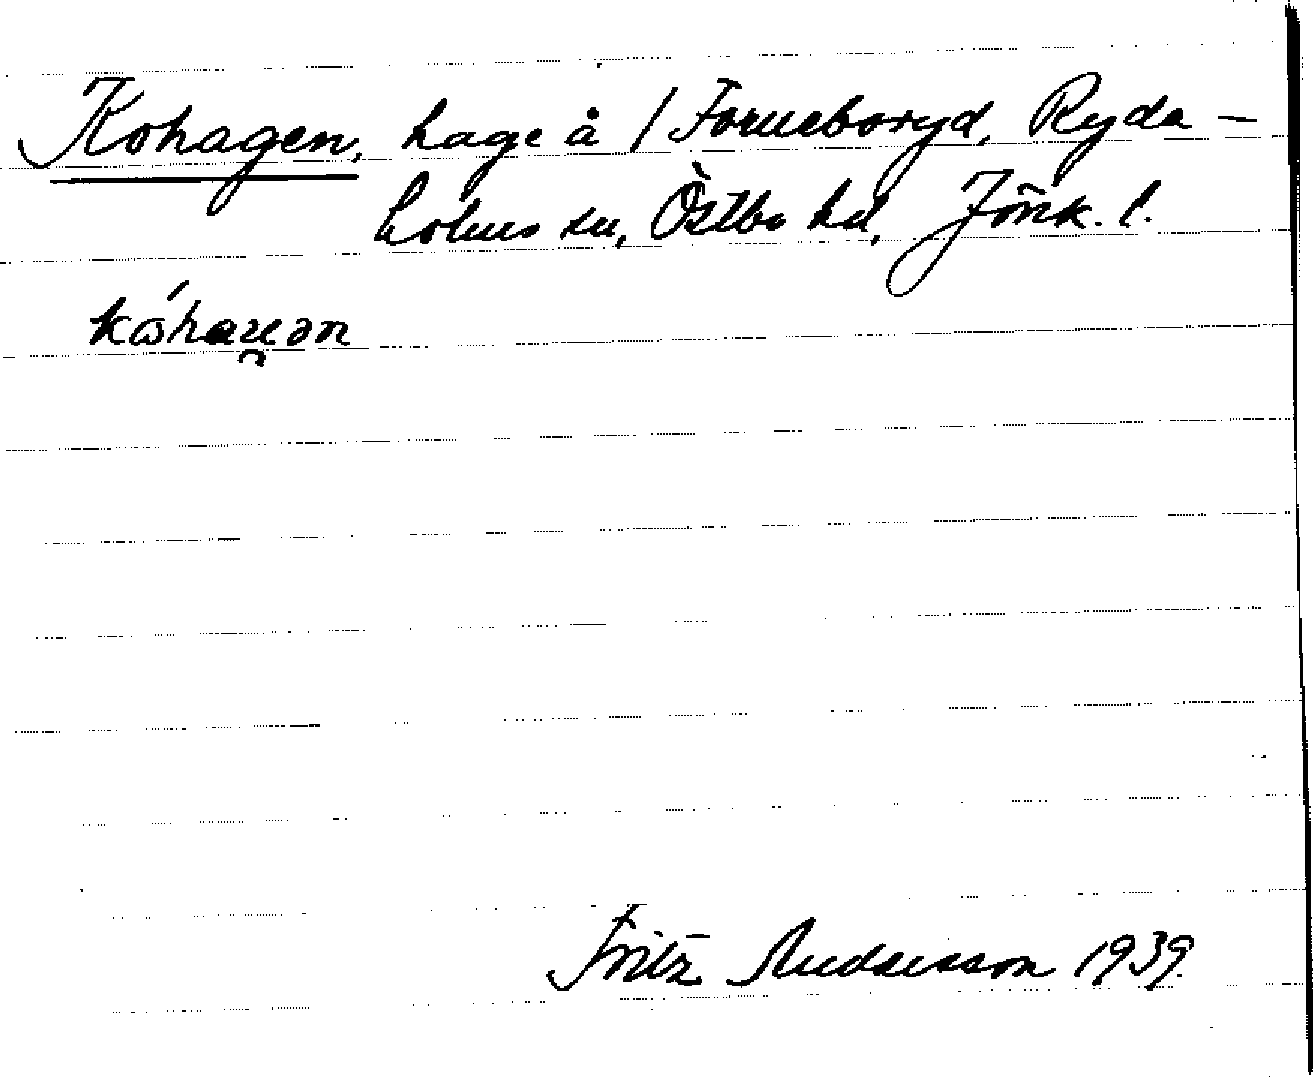 Kohagen, hage å / Forneboryd, Ryda-
holms sn, Östbo hd, Jönk. l.
Fritz Andersson 1939.